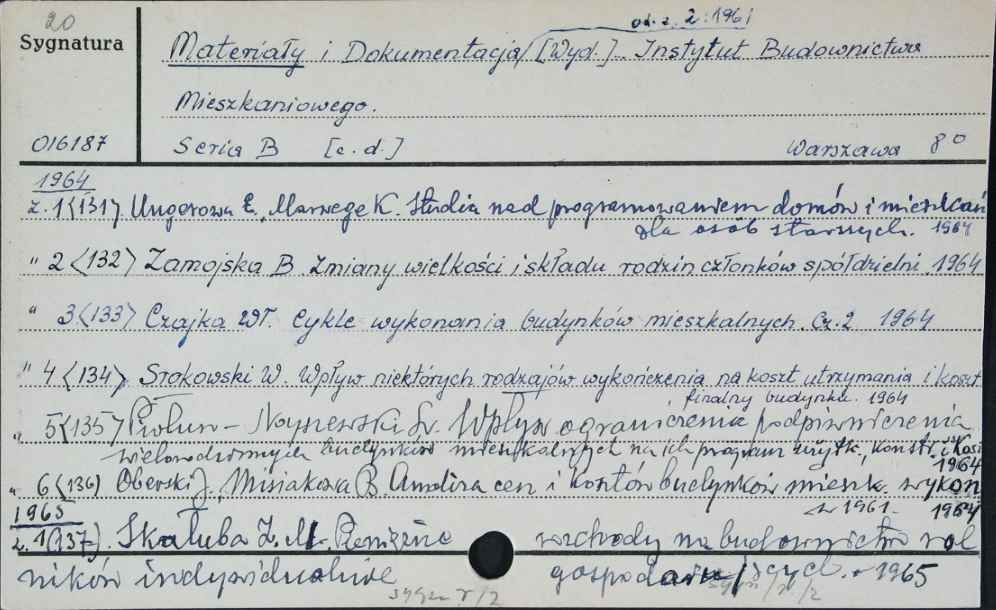 20
Sygnatura
od z. 2: 1961
Materiały i Dokumentacja/ [Wyd.] Instytut Budownictwa
Mieszkaniowego.
016187 Seria B [c.d.] Warszawa 8°
1964
z. 1 <131> Ungerowa E., Marwege K. Studia nad programowaniem domów i mieszkań
dla osób starszych. 1964
" 2 <132> Zamojska B. Zmiany wielkości i składu rodzin członków spółdzielni 1964
" 3 <133> Czajka Wł. Cykle wykonania budynków mieszkalnych. Cz. 2 1964
" 4 <134> Srokowski W. Wpływ niektórych rodzajów wykończenia na koszt utrzymania i koszt
finalny budynku. 1964
" 5 <135> Wpływ ograniczenia podpiwniczenia
wielorodzinnych budynków mieszkalnych na ich program użytk., konstr. i koszt
1964
" 6 <136> Oberski J., Misiakowa B. Analiza cen i kosztów budynków mieszk. wykon
z 1961. 1964
1965
z. 1 (137). Skałuba Z. M. Pieniężne rozchody na budownictwo rol
ników indywidualnie gospodaru/jących. 1965
sygn r/2